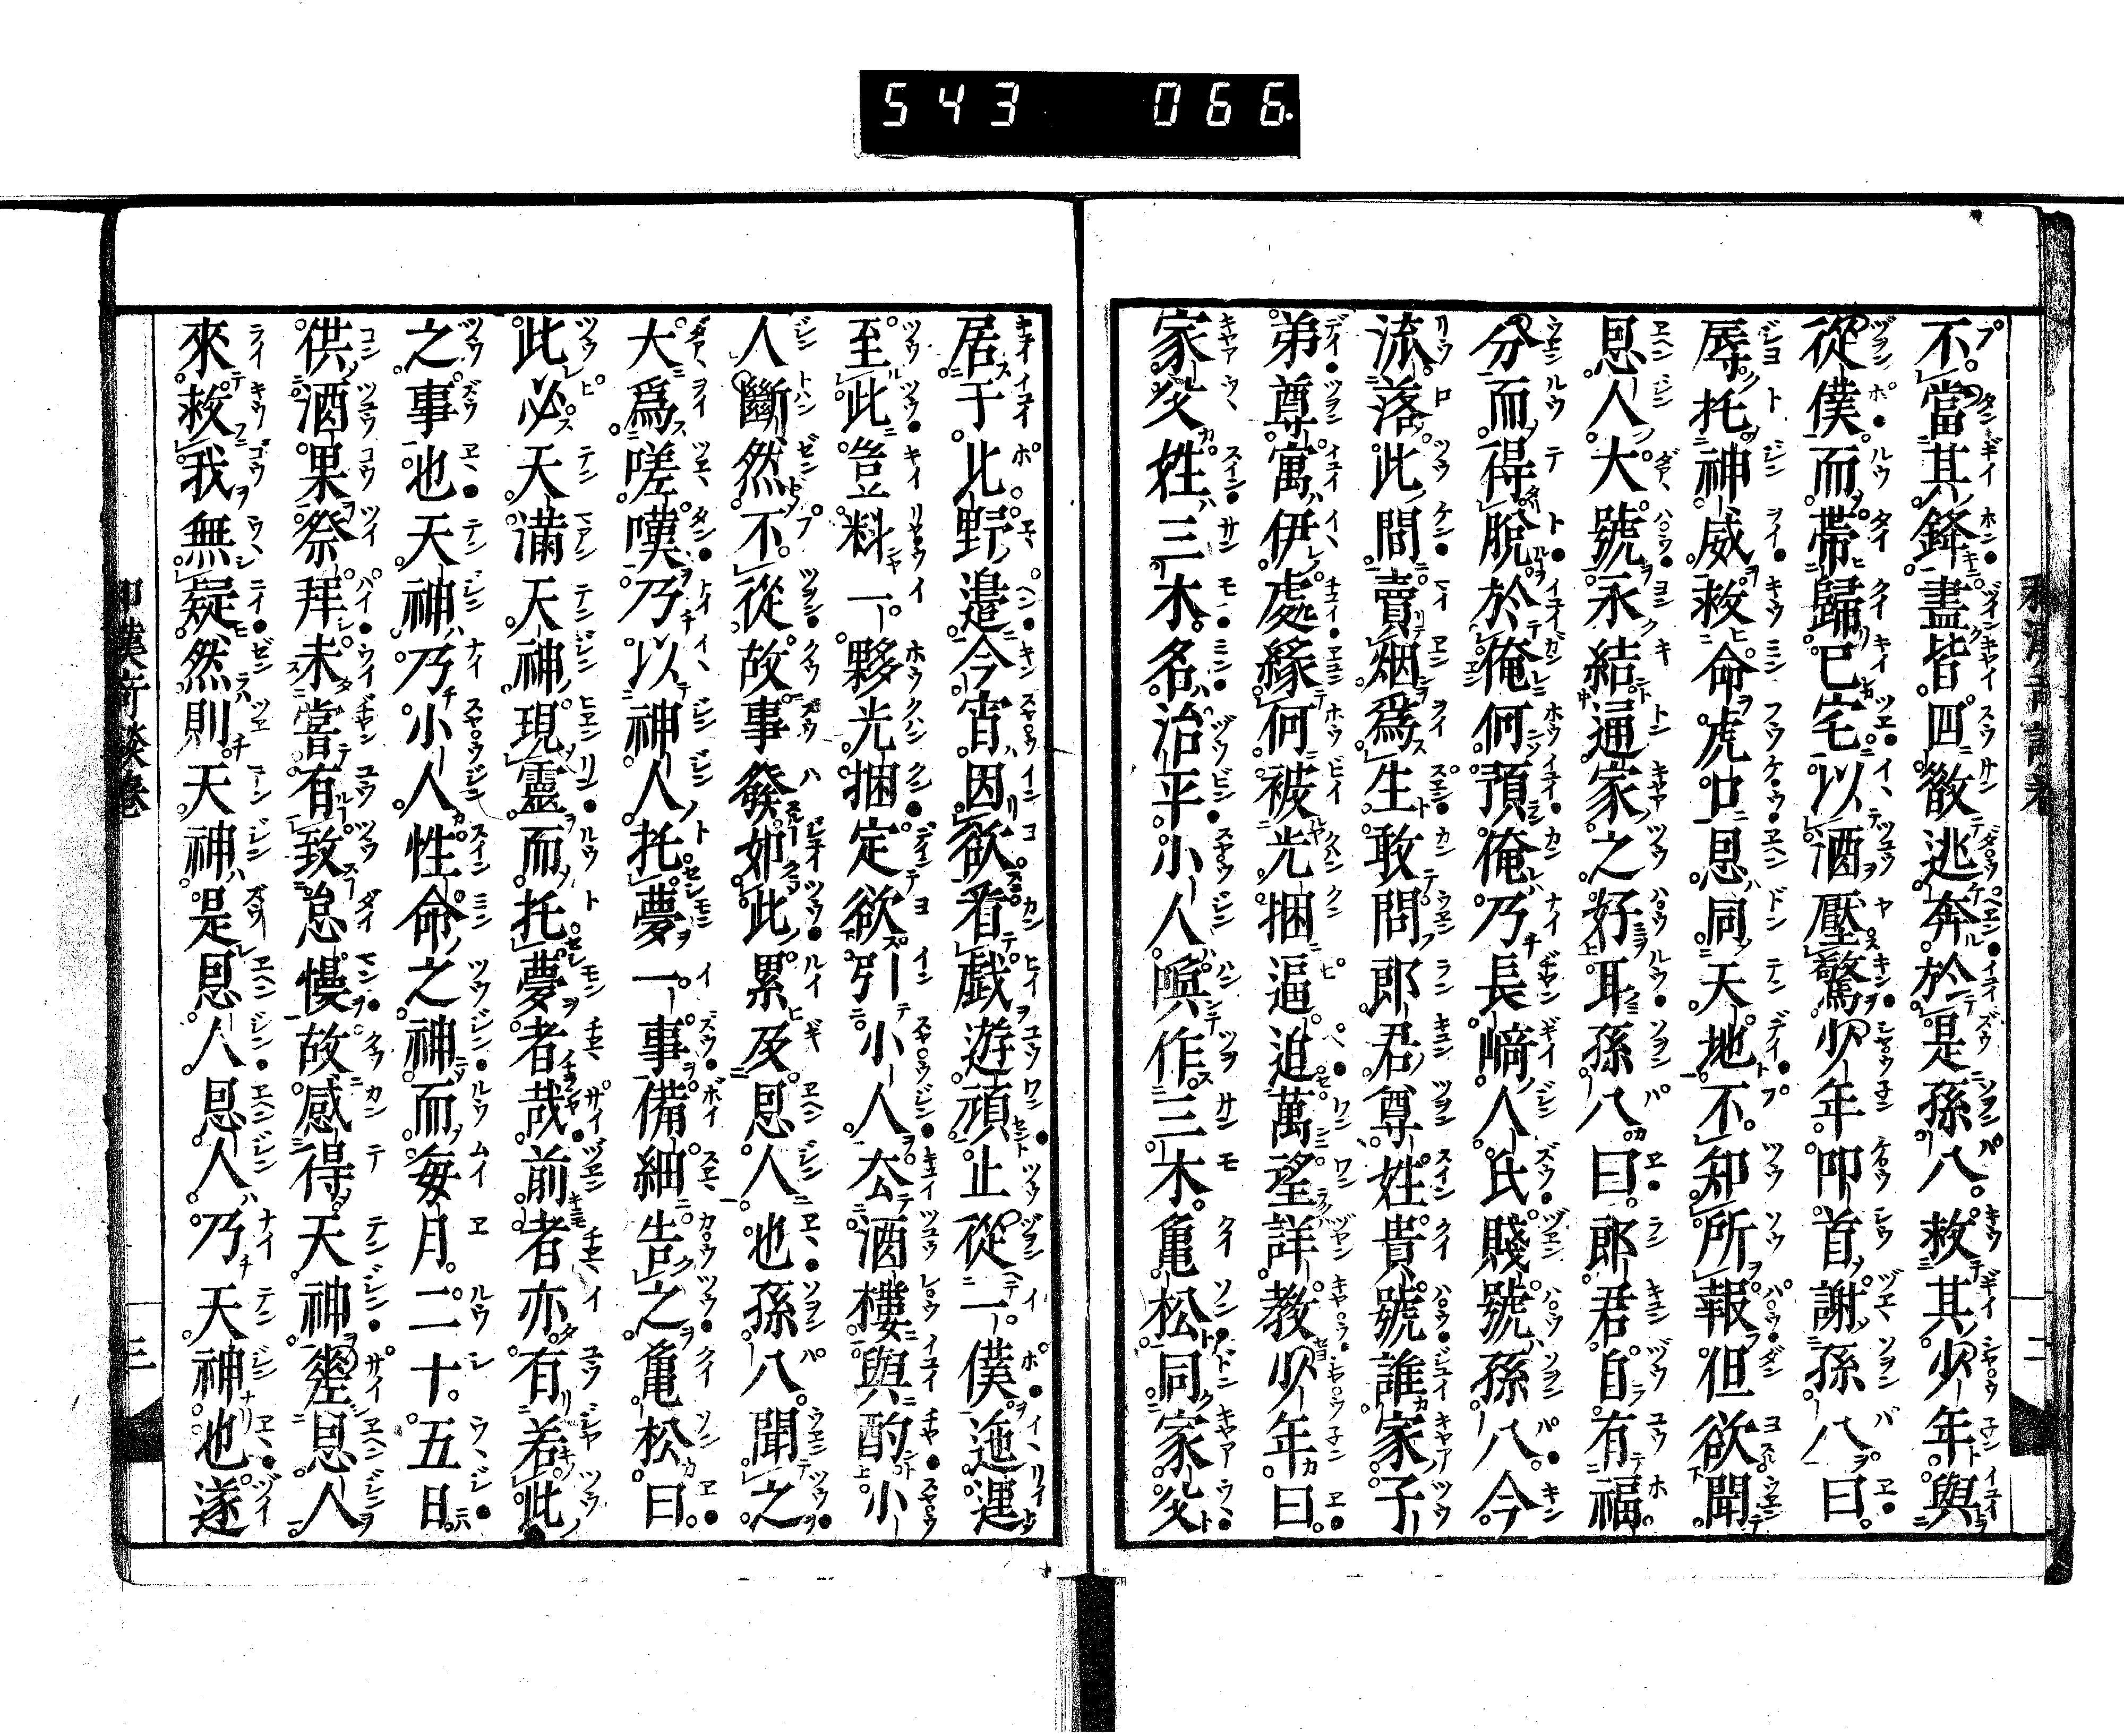 543 066
不當其鋒盡皆四散逃奔於是孫八救其少年與
從僕而帶歸已宅以酒壓驚少年叩首謝孫八曰
辱托神威救命虎口恩同天地不知所報但欲聞
恩人大號永結通家之好耳孫八曰郎君自有福
分而得脫於俺何預俺乃長崎人氏賤號孫八今
流落此間賣烟爲生敢問郎君尊姓貴號誰家子
弟尊寓伊處緣何被光捆逼迫萬望詳教少年曰
家父姓三木名治平小人喚作三木亀松同家父
居于北野邉今宵因欲看戯遊頑止從一僕迤逦
至此豈料一夥光捆定欲引小人厺酒樓與酌小
人斷然不從故事發如此累及恩人也孫八聞之
大爲嗟嘆乃以神人托夢一事備細告之亀松曰
此必天滿天神現靈而托夢者哉前者亦有若此
之事也天神乃小人性命之神而毎月二十五日
供酒果祭拜未甞有致怠慢故感得天神差恩人
來救我無疑然則天神是恩人恩人乃天神也遂
三